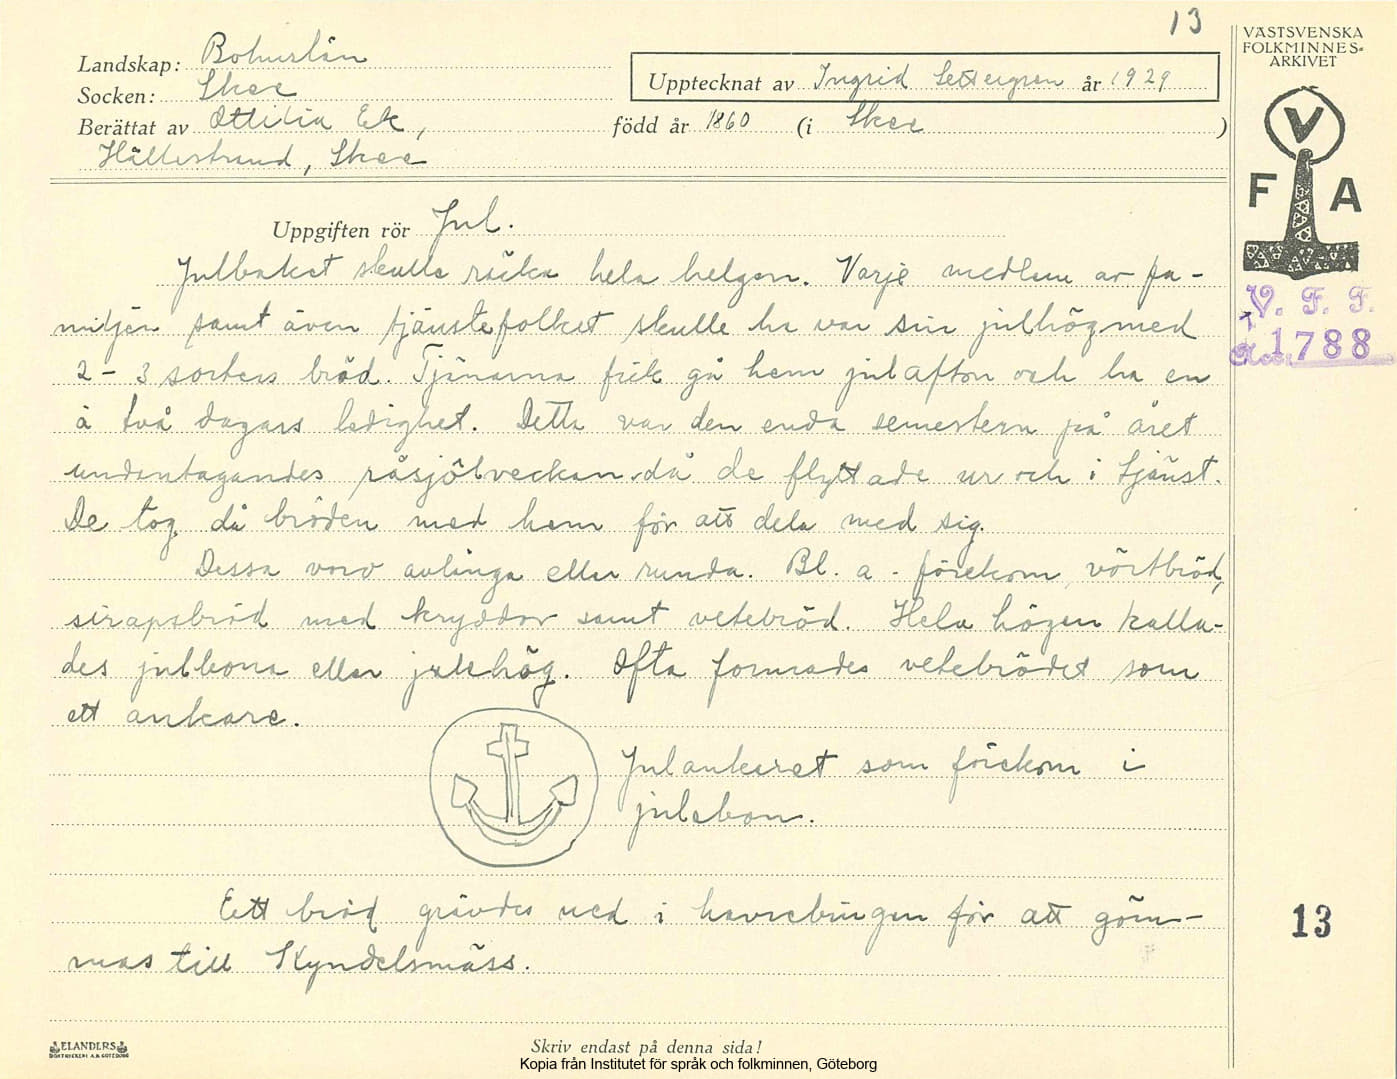 13
VÄSTSVENSKA
FOLKMINNES-
ARKIVET
Landskap: Bohuslän
Upptecknat av Ingrid Settergren år 1929
Socken: Skee
Berättat av Ottilia Ek, född år 1860 (i Skee )
Hällestrand, Skee
V
F A
V. F. F.
Acc. 1788
Uppgiften rör Jul.
Julbaket skulle räcka hela helgen. Varje medlem av fa-
miljen samt även tjänstefolket skulle ha var sin julhög med
2-3 sorters bröd. Tjänarna fick gå hem julafton och ha en
à två dagars ledighet. Detta var den enda semestern på året
undantagandes råsjölveckan då de flyttade ur och i tjänst.
De tog då bröden med hem för att dela med sig.
Dessa voro avlånga eller runda. Bl. a. förekom vörtbröd,
sirapsbröd med kryddor samt vetebröd. Hela högen kalla-
des julbona eller julehög. Ofta formades vetebrödet som
ett ankare.
Julankaret som förekom i
julebon.
Ett bröd grävdes ned i havrebingen för att göm-
mas till Kyndelsmäss.
13
ELANDERS
BOKTRYCKERI A.B. GÖTEBORG
Skriv endast på denna sida!
Kopia från Institutet för språk och folkminnen, Göteborg